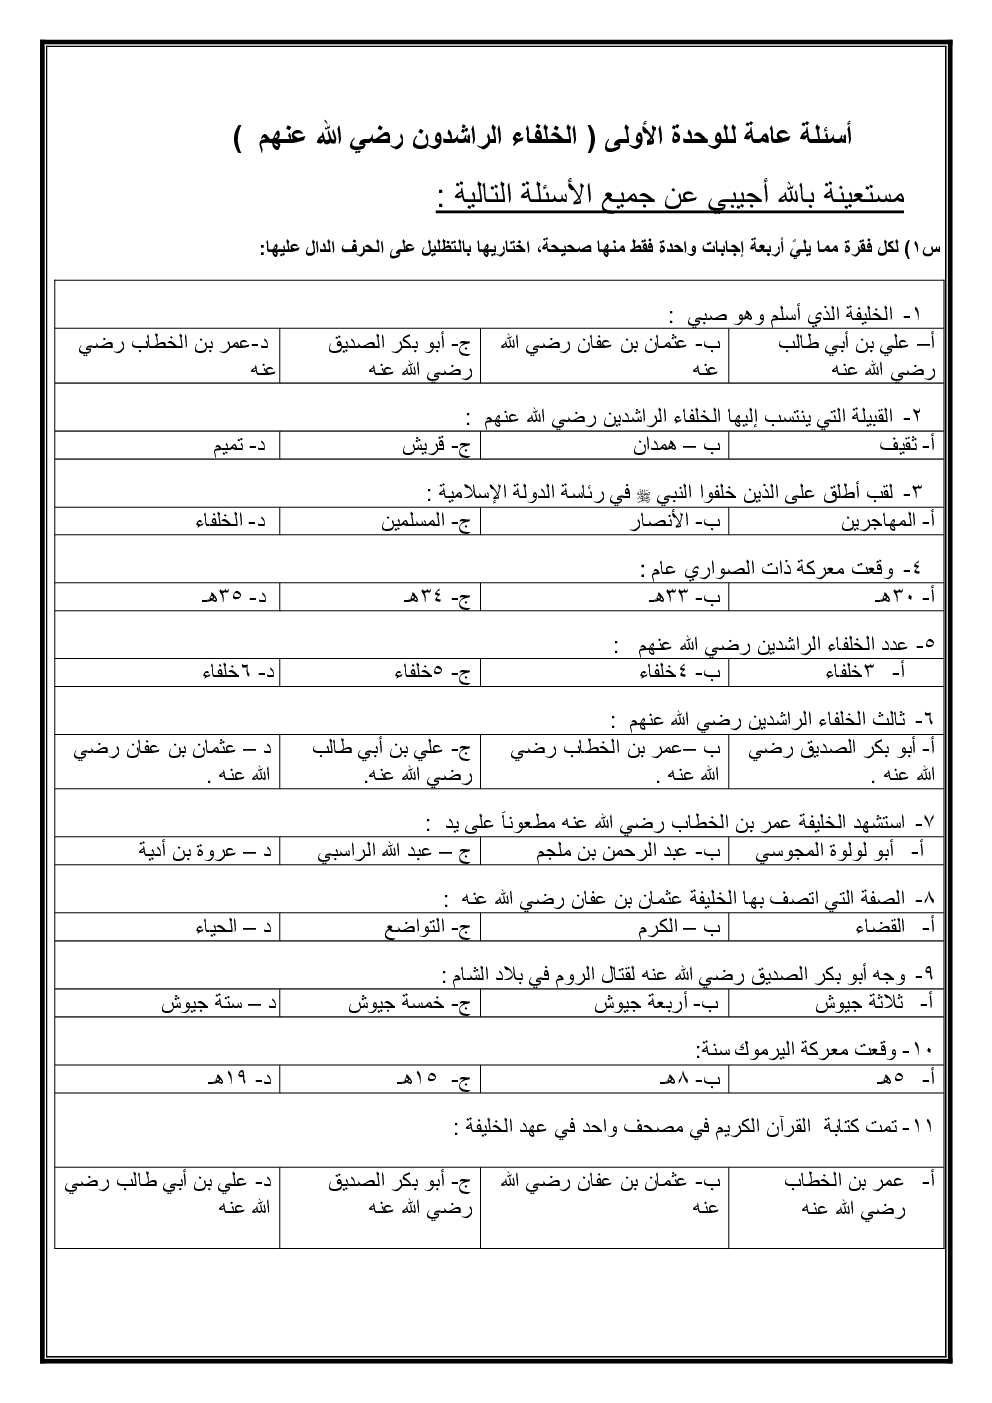 أسئلة عامة للوحدة الأولى ( الخلفاء الراشدون رضي الله عنهم )
مستعينة بالله أجيبي عن جميع الأسئلة التالية :
س١) لكل فقرة مما يليّ أربعة إجابات واحدة فقط منها صحيحة، اختاريها بالتظليل على الحرف الدال عليها:
١- الخليفة الذي أسلم وهو صبي :
أ– علي بن أبي طالب رضي الله عنه
ب- عثمان بن عفان رضي الله عنه
ج- أبو بكر الصديق رضي الله عنه
د-عمر بن الخطاب رضي عنه
٢- القبيلة التي ينتسب إليها الخلفاء الراشدين رضي الله عنهم :
أ- ثقيف
ب – همدان
ج- قريش
د- تميم
٣- لقب أطلق على الذين خلفوا النبي ﷺ في رئاسة الدولة الإسلامية :
أ- المهاجرين
ب- الأنصار
ج- المسلمين
د- الخلفاء
٤- وقعت معركة ذات الصواري عام :
أ- ٣٠هـ
ب- ٣٣هـ
ج- ٣٤هـ
د- ٣٥هـ
٥- عدد الخلفاء الراشدين رضي الله عنهم :
أ- ٣خلفاء
ب- ٤خلفاء
ج- ٥خلفاء
د- ٦خلفاء
٦- ثالث الخلفاء الراشدين رضي الله عنهم :
أ- أبو بكر الصديق رضي الله عنه .
ب –عمر بن الخطاب رضي الله عنه .
ج- علي بن أبي طالب رضي الله عنه.
د – عثمان بن عفان رضي الله عنه .
٧- استشهد الخليفة عمر بن الخطاب رضي الله عنه مطعوناً على يد :
أ- أبو لولوة المجوسي
ب- عبد الرحمن بن ملجم
ج – عبد الله الراسبي
د – عروة بن أدية
٨- الصفة التي اتصف بها الخليفة عثمان بن عفان رضي الله عنه :
أ- القضاء
ب – الكرم
ج- التواضع
د – الحياء
٩- وجه أبو بكر الصديق رضي الله عنه لقتال الروم في بلاد الشام :
أ- ثلاثة جيوش
ب- أربعة جيوش
ج- خمسة جيوش
د – ستة جيوش
١٠- وقعت معركة اليرموك سنة:
أ- ٥هـ
ب- ٨هـ
ج- ١٥هـ
د- ١٩هـ
١١- تمت كتابة القرآن الكريم في مصحف واحد في عهد الخليفة :
أ- عمر بن الخطاب رضي الله عنه
ب- عثمان بن عفان رضي الله عنه
ج- أبو بكر الصديق رضي الله عنه
د- علي بن أبي طالب رضي الله عنه